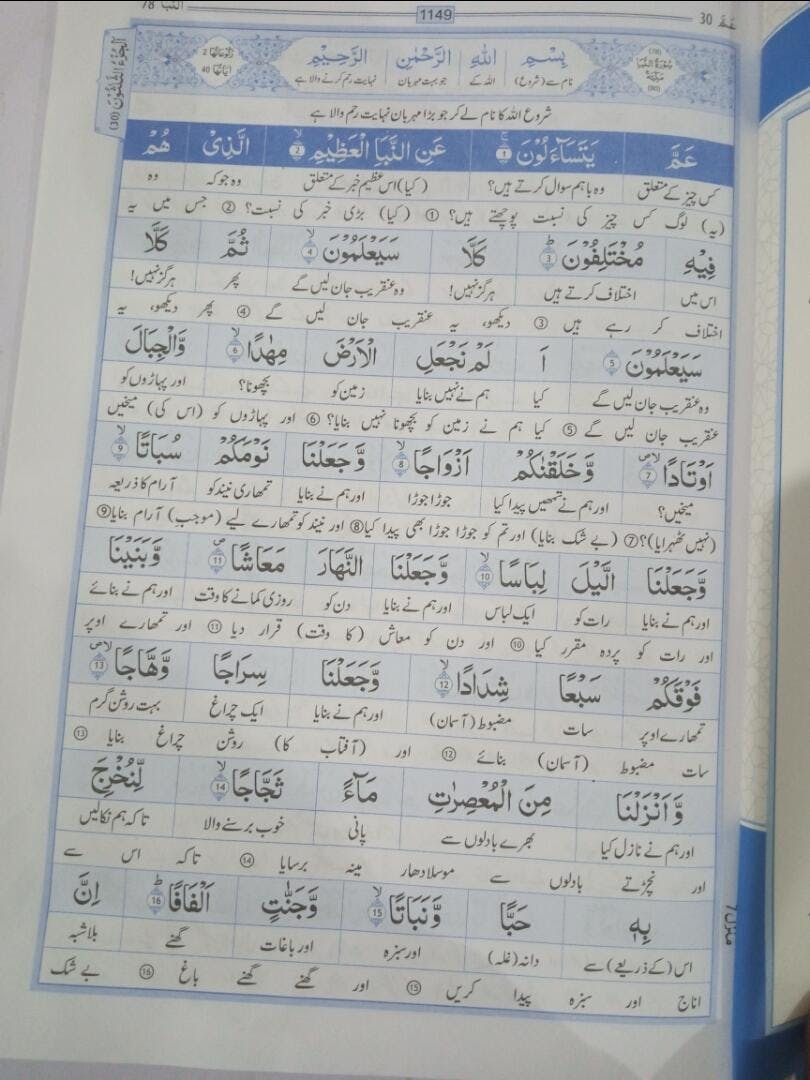 عَمَّ 30
1149
النبا 78
اَلْجُزْءُ الثَّلٰثُوْنَ (30)
(78) سُوْرَةُ النَّبَاِ مَكِّيَّةٌ (80)
بِسْمِ اللهِ الرَّحْمٰنِ الرَّحِيْمِ
رُكُوْعَاتُهَا 2 اٰيَاتُهَا 40
نام سے (شروع) اللہ کے جو بہت مہربان نہایت رحم کرنے والا ہے
شروع اللہ کا نام لے کر جو بڑا مہربان نہایت رحم والا ہے
عَمَّ يَتَسَآءَلُوْنَ ۚ 1 عَنِ النَّبَاِ الْعَظِيْمِ ۙ 2 الَّذِىْ هُمْ
کس چیز کے متعلق وہ باہم سوال کرتے ہیں؟ (کیا) اس عظیم خبر کے متعلق وہ جو کہ وہ
(یہ) لوگ کس چیز کی نسبت پوچھتے ہیں؟ ① (کیا) بڑی خبر کی نسبت؟ ② جس میں یہ
فِيْهِ مُخْتَلِفُوْنَ ؕ 3 كَلَّا سَيَعْلَمُوْنَ ۙ 4 ثُمَّ كَلَّا
اس میں اختلاف کرتے ہیں ہرگز نہیں! وہ عنقریب جان لیں گے پھر ہرگز نہیں!
اختلاف کر رہے ہیں ③ دیکھو، یہ عنقریب جان لیں گے ④ پھر دیکھو، یہ
سَيَعْلَمُوْنَ 5 اَ لَمْ نَجْعَلِ الْاَرْضَ مِهٰدًا ۙ 6 وَّالْجِبَالَ
وہ عنقریب جان لیں گے کیا ہم نے نہیں بنایا زمین کو بچھونا؟ اور پہاڑوں کو
عنقریب جان لیں گے ⑤ کیا ہم نے زمین کو بچھونا نہیں بنایا؟ ⑥ اور پہاڑوں کو (اس کی) میخیں
اَوْتَادًا ۙ 7 وَّخَلَقْنٰكُمْ اَزْوَاجًا ۙ 8 وَّجَعَلْنَا نَوْمَكُمْ سُبَاتًا ۙ 9
میخیں؟ اور ہم نے تمھیں پیدا کیا جوڑا جوڑا اور ہم نے بنایا تمھاری نیند کو آرام کا ذریعہ
(نہیں ٹھہرایا)؟ ⑦ (بے شک بنایا) اور تم کو جوڑا جوڑا بھی پیدا کیا ⑧ اور نیند کو تمھارے لیے (موجب) آرام بنایا ⑨
وَّجَعَلْنَا الَّيْلَ لِبَاسًا ۙ 10 وَّجَعَلْنَا النَّهَارَ مَعَاشًا ۪ 11 وَّبَنَيْنَا
اور ہم نے بنایا رات کو ایک لباس اور ہم نے بنایا دن کو روزی کمانے کا وقت اور ہم نے بنائے
اور رات کو پردہ مقرر کیا ⑩ اور دن کو معاش (کا وقت) قرار دیا ⑪ اور تمھارے اوپر
فَوْقَكُمْ سَبْعًا شِدَادًا ۙ 12 وَّجَعَلْنَا سِرَاجًا وَّهَّاجًا ۙ 13
تمھارے اوپر سات مضبوط (آسمان) اور ہم نے بنایا ایک چراغ بہت روشن گرم
سات مضبوط (آسمان) بنائے ⑫ اور (آفتاب کا) روشن چراغ بنایا ⑬
وَّاَنْزَلْنَا مِنَ الْمُعْصِرٰتِ مَآءً ثَجَّاجًا ۙ 14 لِّنُخْرِجَ
اور ہم نے نازل کیا بھرے بادلوں سے پانی خوب برسنے والا تاکہ ہم نکالیں
اور نچڑتے بادلوں سے موسلادھار مینہ برسایا ⑭ تاکہ اس سے
بِهٖ حَبًّا وَّنَبَاتًا ۙ 15 وَّجَنّٰتٍ اَلْفَافًا ؕ 16 اِنَّ
اس (کے ذریعے) سے دانہ (غلہ) اور سبزہ اور باغات گھنے بلاشبہ
اناج اور سبزہ پیدا کریں ⑮ اور گھنے گھنے باغ ⑯ بے شک
منزل 7